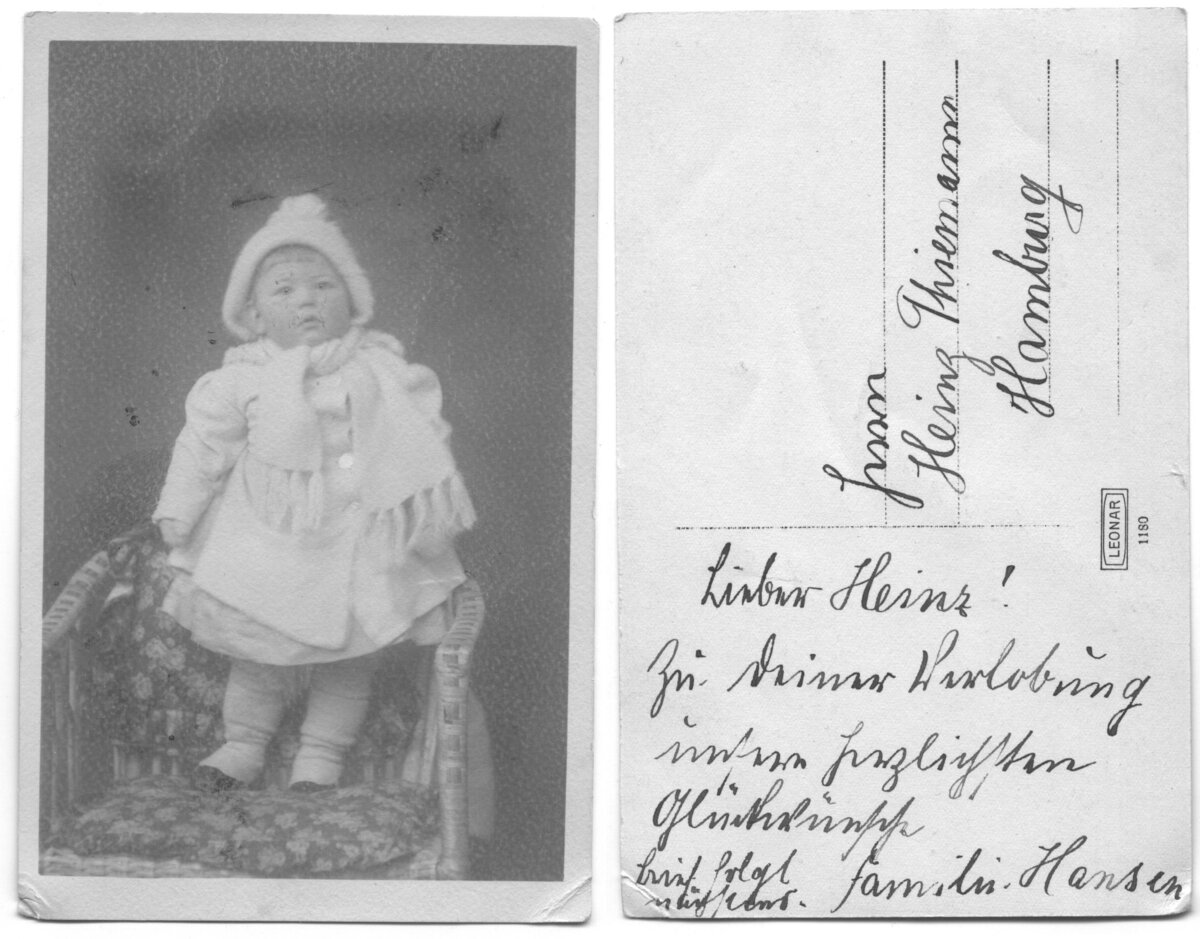 Herrn
Heinz Thiemann
Hamburg
LEONAR
1180
Lieber Heinz!
Zu Deiner Verlobung
unsere herzlichsten
Glückwünsche
Familie Hansen
Brief folgt
nächstens.